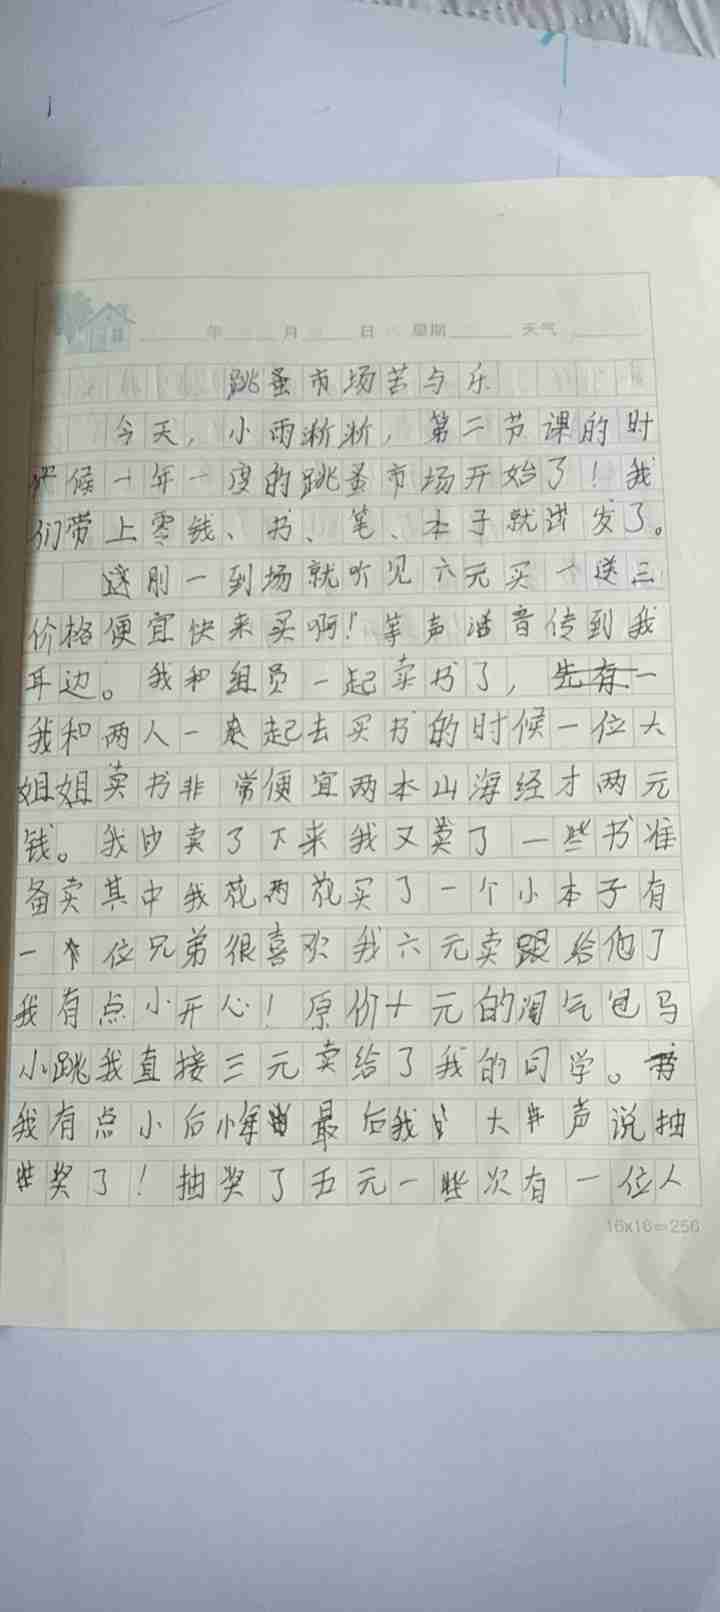 年 月 日 星期 天气
跳蚤市场苦与乐
今天，小雨淅淅，第二节课的时
候一年一度的跳蚤市场开始了！我
们带上零钱、书、笔、本子就出发了。
刚一到场就听见六元买一送三
价格便宜快来买啊！等声音传到我
耳边。我和组员一起卖书了，先有一
我和两人一起去买书的时候一位大
姐姐卖书非常便宜两本山海经才两元
钱。我卖了下来我又买了一些书准
备卖其中我花两花买了一个小本子有
一位兄弟很喜欢我六元卖给他了
我有点小开心！原价十元的淘气包马
小跳我直接三元卖给了我的同学。
我有点小后悔最后我大声说抽
奖了！抽奖了五元一次有一位人
16×16=256